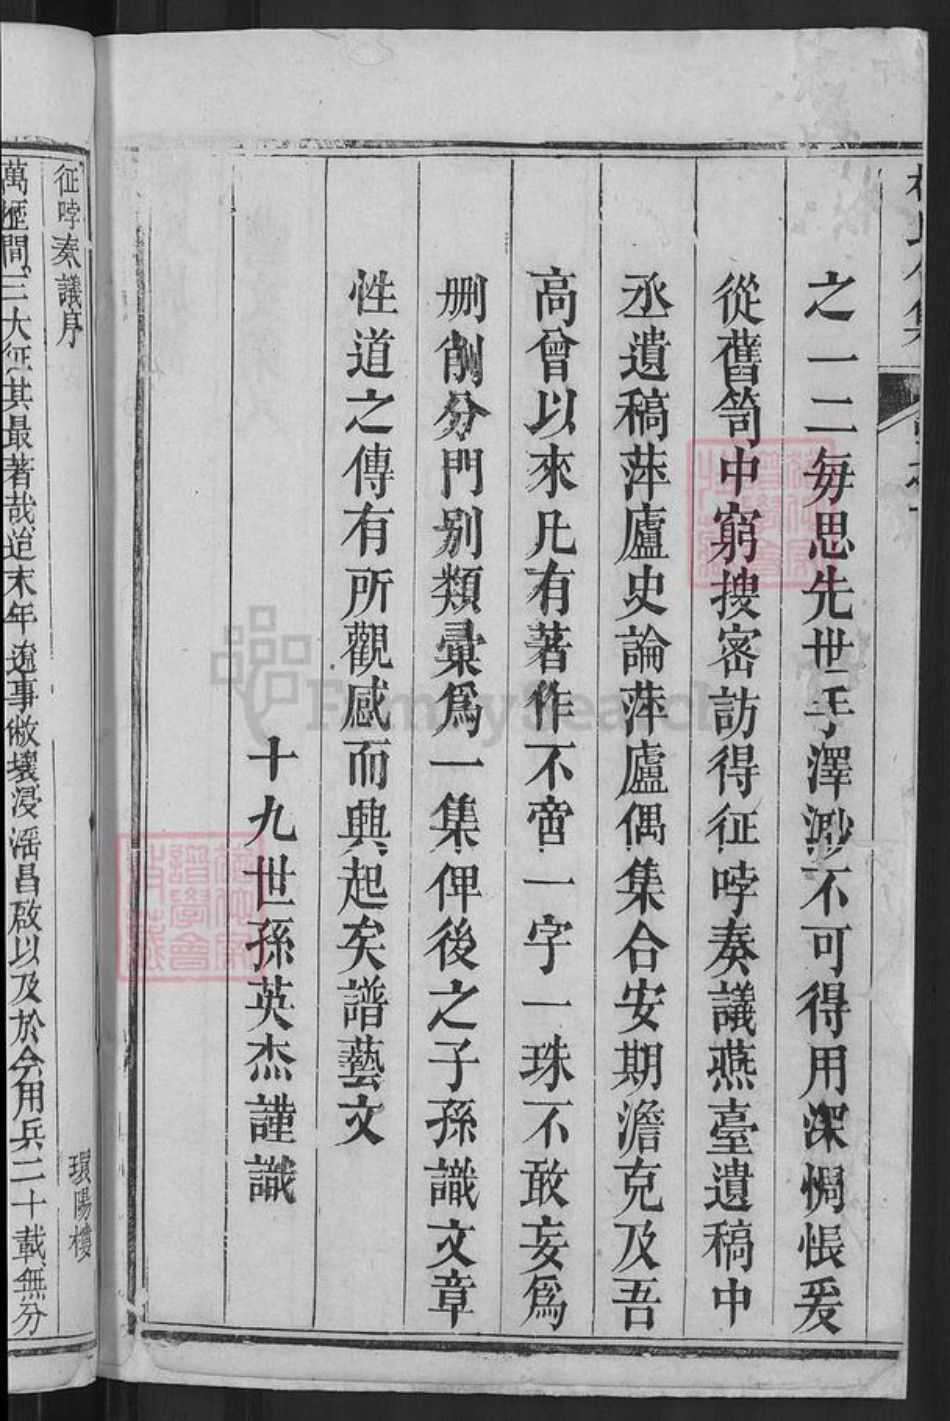 之一二毎思先世手澤渺不可得用深惆悵爰
從舊笥中窮搜密訪得征哱奏議燕臺遺稿中
丞遺稿萍廬史論萍廬偶集合安期澹克及吾
高曾以來凡有著作不啻一字一珠不敢妄爲
删削分門别類彙爲一集俾後之子孫識文章
性道之傳有所觀感而興起矣譜藝文
十九世孫英杰謹識
征哱奏議序
環陽樓
萬歴間三大征其最著哉迨末年遼事敝壞浸淫昌啟以及於今用兵二十載無分
FamilySearch